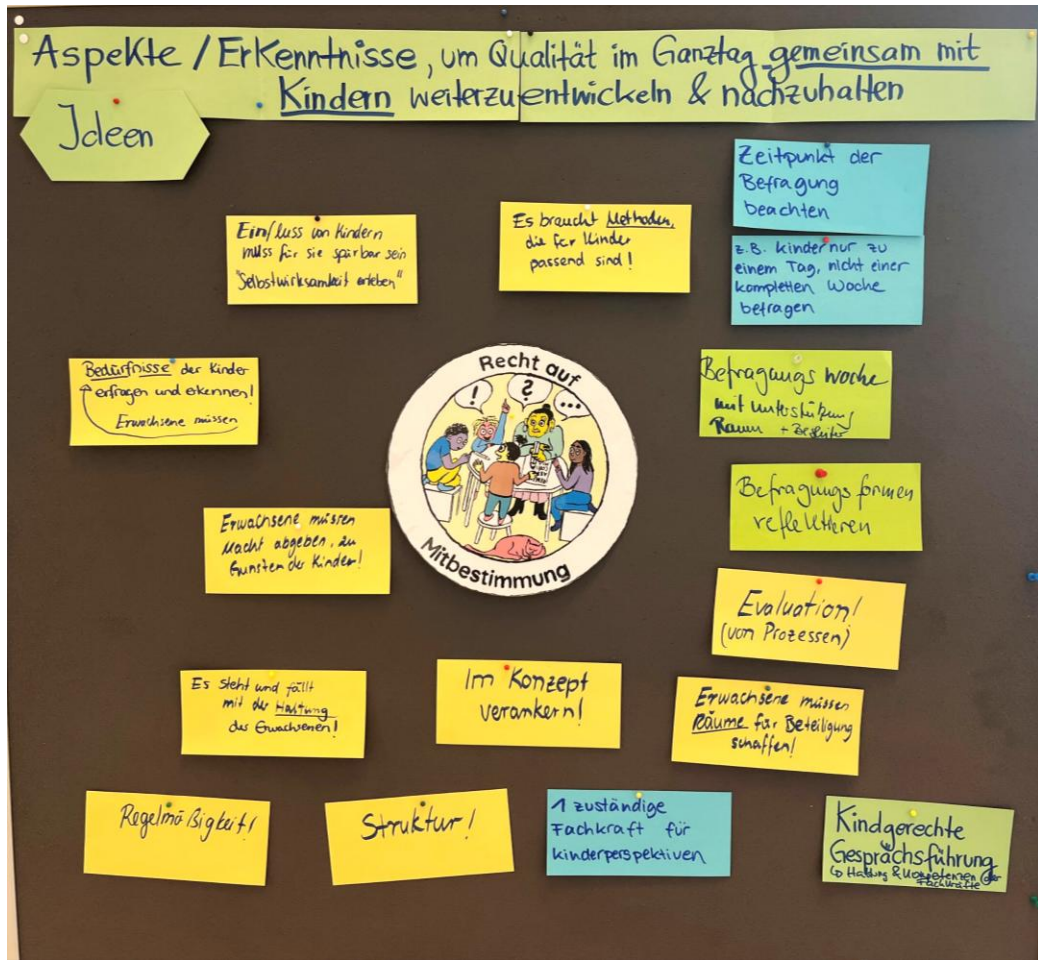 Aspekte / Erkenntnisse, um Qualität im Ganztag gemeinsam mit
Kindern weiterzuentwickeln & nachzuhalten
Ideen
Einfluss von Kindern
muss für sie spürbar sein
"Selbstwirksamkeit erleben"
Es braucht Methoden,
die für Kinder
passend sind!
Zeitpunkt der
Befragung
beachten
z.B. kinder nur zu
einem Tag, nicht einer
kompletten Woche
befragen
Bedürfnisse der Kinder
erfragen und erkennen!
Erwachsene müssen
Recht auf
! ? ...
Mitbestimmung
Befragungswoche
mit Unterstützung
Raum + Begleiter
Befragungsformen
reflektieren
Erwachsene müssen
Macht abgeben, zu
Gunsten der Kinder!
Evaluation!
(von Prozessen)
Es steht und fällt
mit der Haltung
der Erwachsenen!
Im Konzept
verankern!
Erwachsene müssen
Räume für Beteiligung
schaffen!
Regelmäßigkeit!
Struktur!
1 zuständige
Fachkraft für
kinderperspektiven
Kindgerechte
Gesprächsführung
↳ Haltung & Kompetenzen der
Fachkräfte